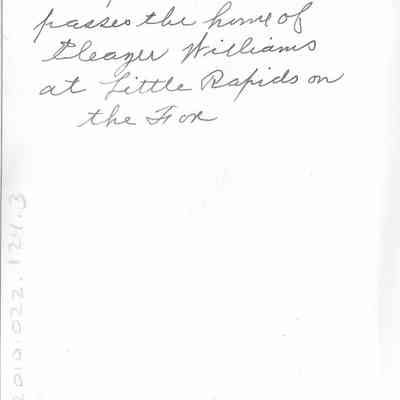 passes the home of
Eleazer Williams
at Little Rapids on
the Fox
2010.022.124.3